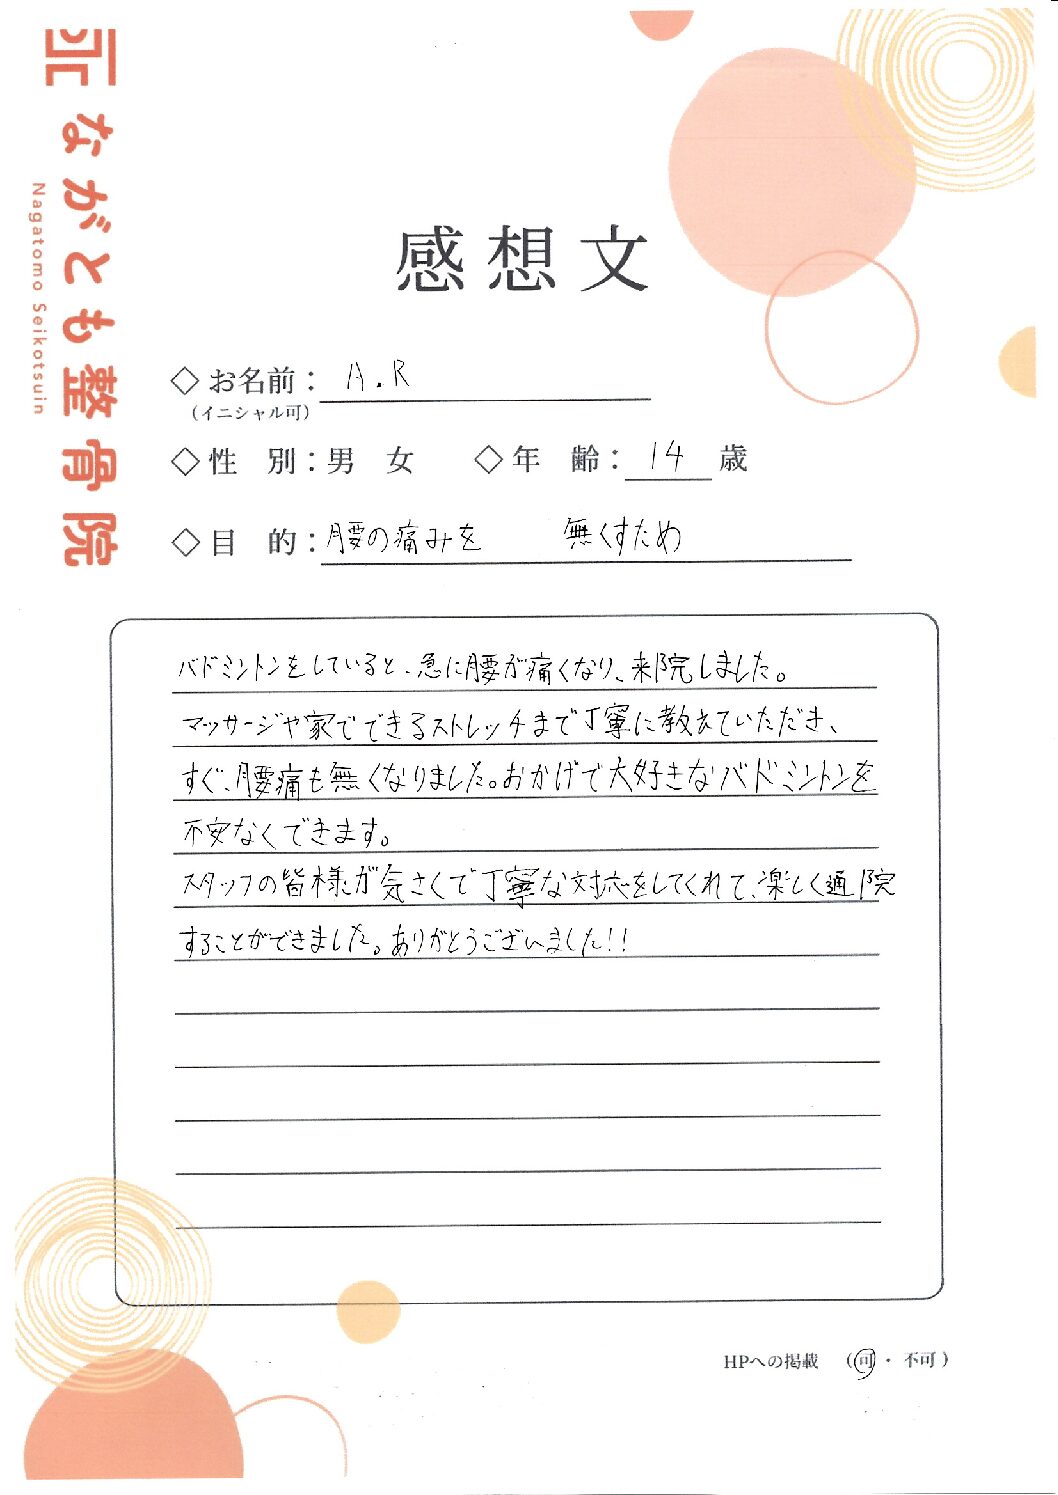 ながとも整骨院
Nagatomo Seikotsuin
感想文
◇お名前： A.R
（イニシャル可）
◇性　別：男　女　　◇年　齢： 14 歳
◇目　的：腰の痛みを　無くすため
バドミントンをしていると、急に腰が痛くなり、来院しました。
マッサージや家でできるストレッチまで丁寧に教えていただき、
すぐ、腰痛も無くなりました。おかげで大好きなバドミントンを
不安なくできます。
スタッフの皆様が気さくで丁寧な対応をしてくれて、楽しく通院
することができました。ありがとうございました!!
HPへの掲載　（可・不可）